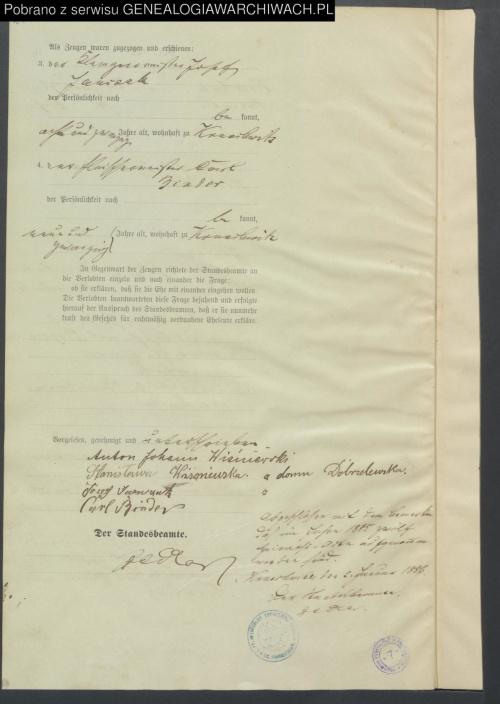 Pobrano z serwisu GENEALOGIAWARCHIWACH.PL
Als Zeugen waren zugezogen und erschienen:
3. der Klempnermeister Josef
der Persönlichkeit nach
be kannt,
acht und zwanzig Jahre alt, wohnhaft zu
4. der Fleischermeister Carl
Binder
der Persönlichkeit nach
be kannt,
neun und
zwanzig Jahre alt, wohnhaft zu
In Gegenwart der Zeugen richtete der Standesbeamte an
die Verlobten einzeln und nach einander die Frage:
ob sie erklären, daß sie die Ehe mit einander eingehen wollen
Die Verlobten beantworteten diese Frage bejahend und erfolgte
hierauf der Ausspruch des Standesbeamten, daß er sie nunmehr
kraft des Gesetzes für rechtmäßig verbundene Eheleute erkläre.
Vorgelesen, genehmigt und unterschrieben
Anton Johann Wiśniewski
Stanisława Wiśniewska a domu
Josef
Carl Binder
Der Standesbeamte.
Abgeschlossen mit dem Bemerken
daß im Jahre 1885 zwölf
Heiraths-Akten aufgenommen
worden sind.
den 2. Januar 1886.
Der Standesbeamte.